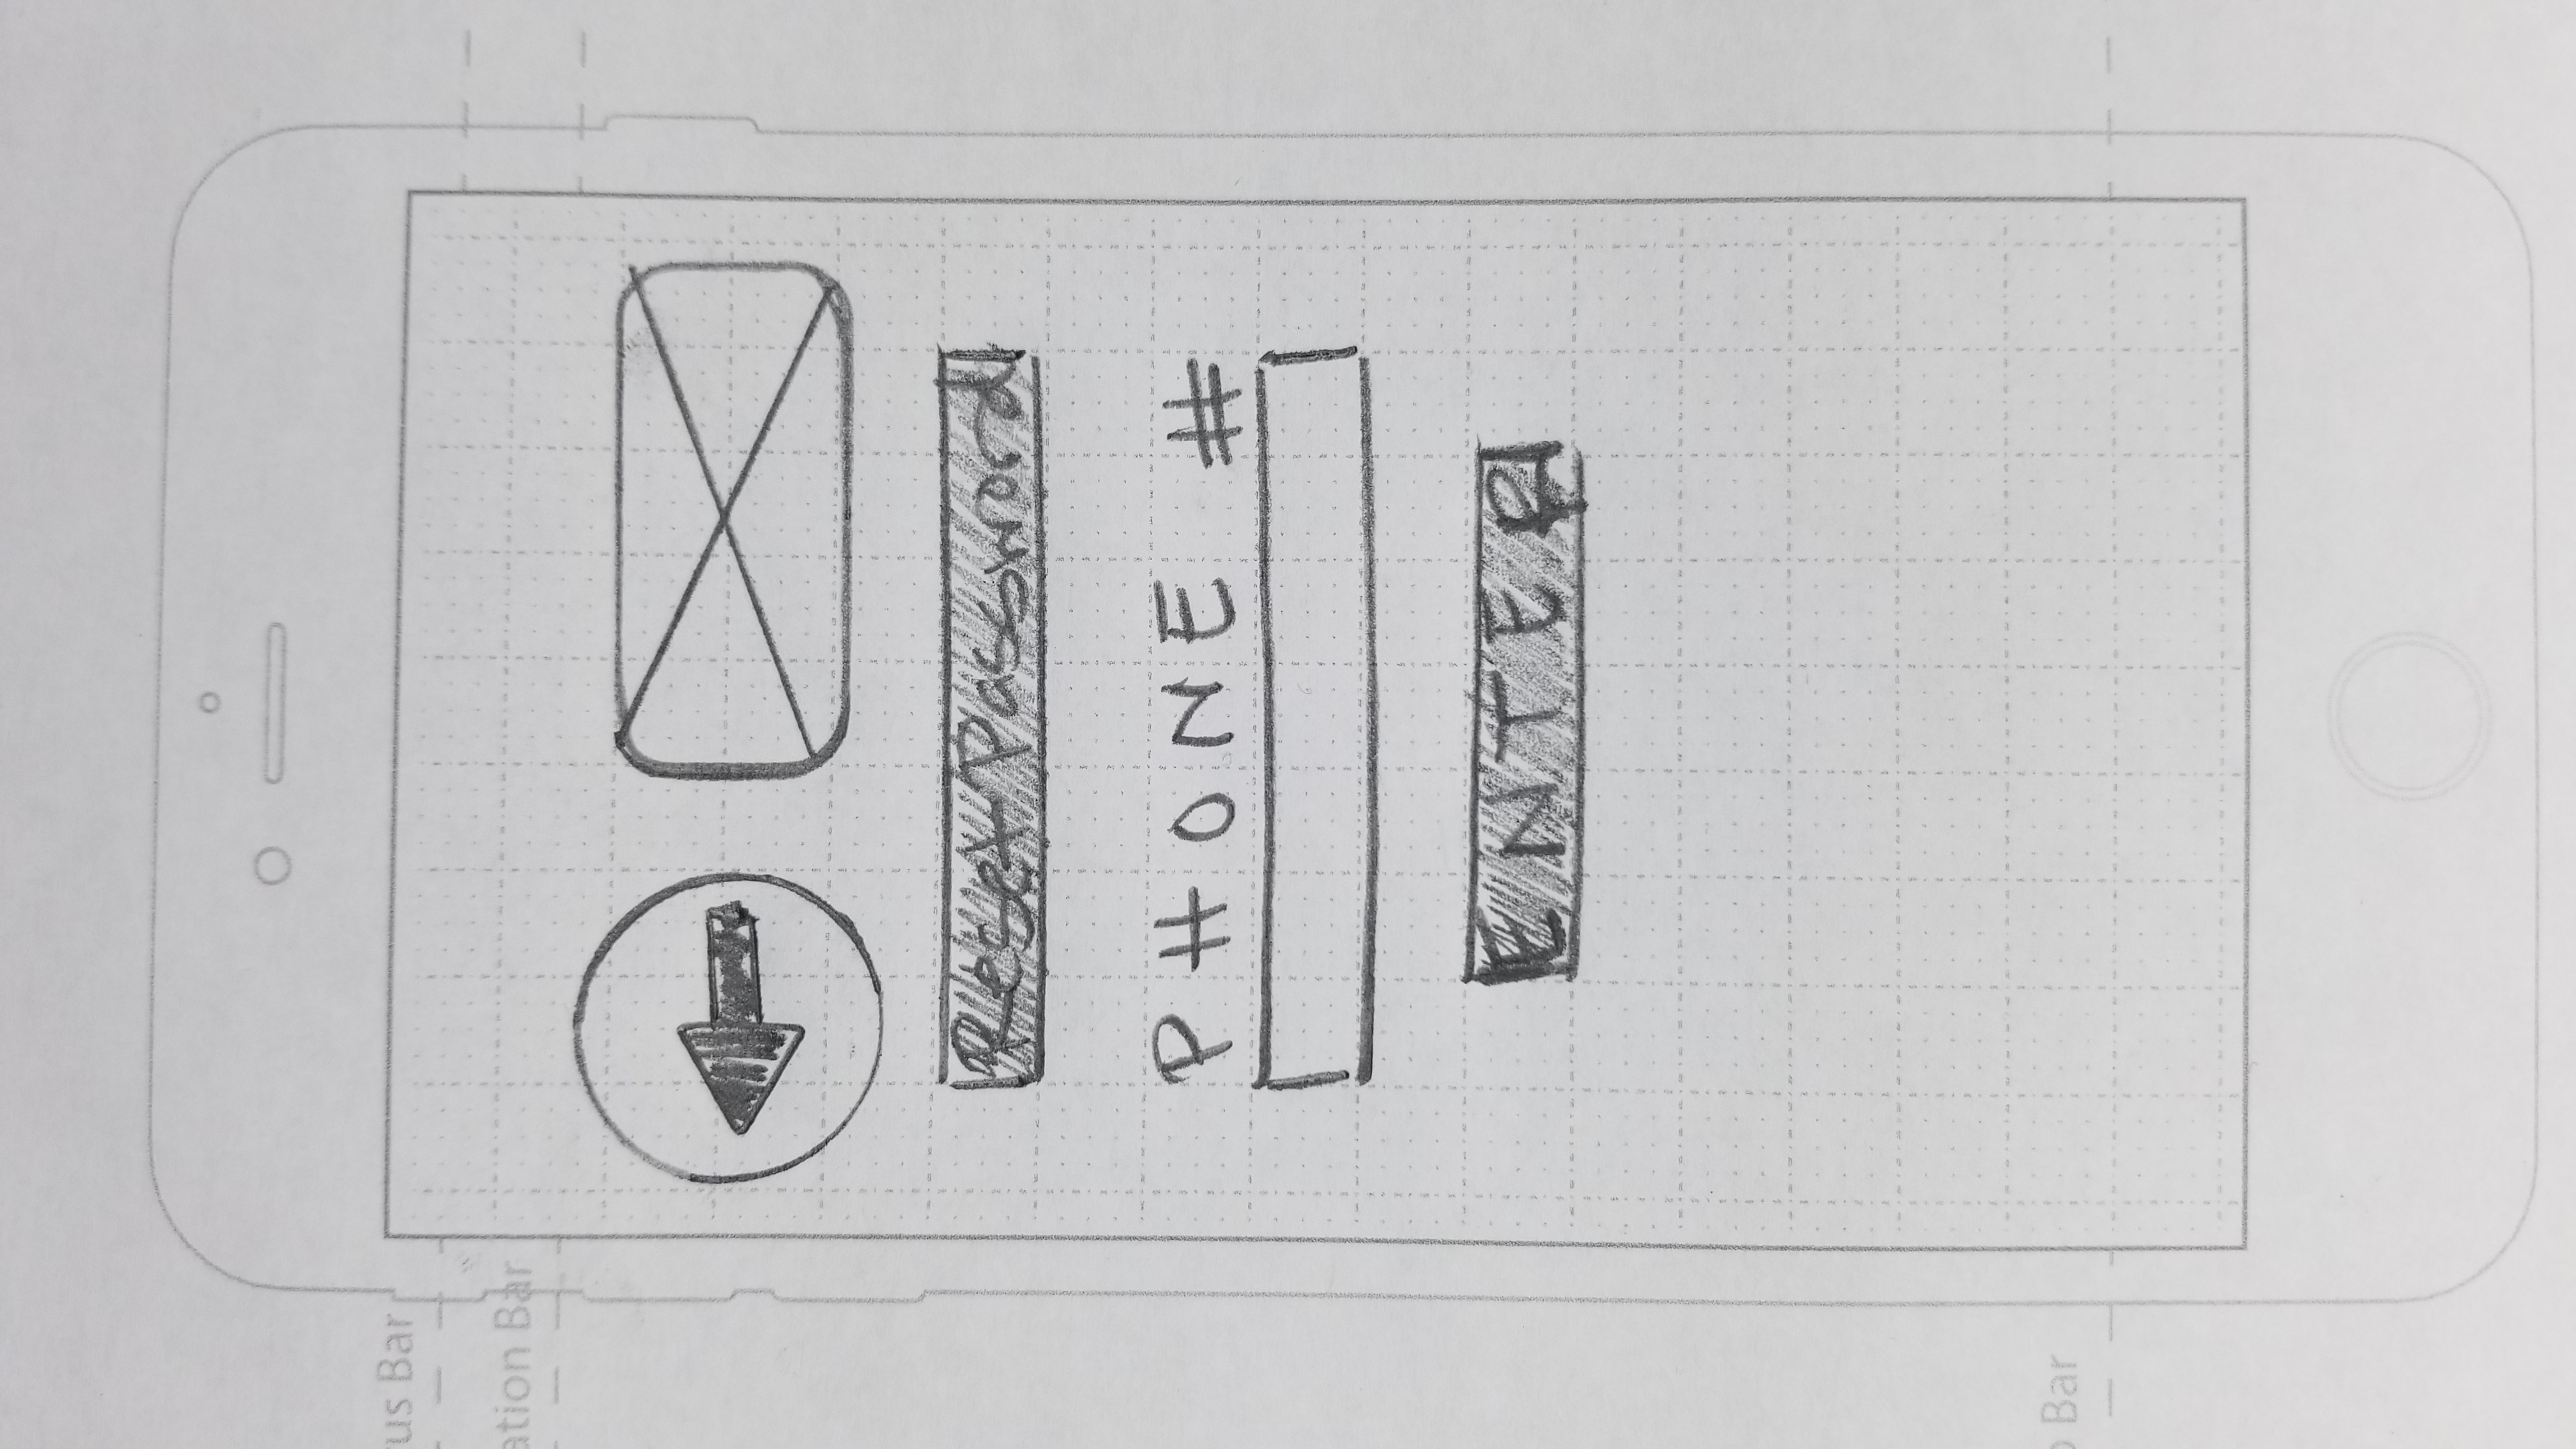 us Bar
ation Bar
Reset Password
PHONE #
ENTER
Bar